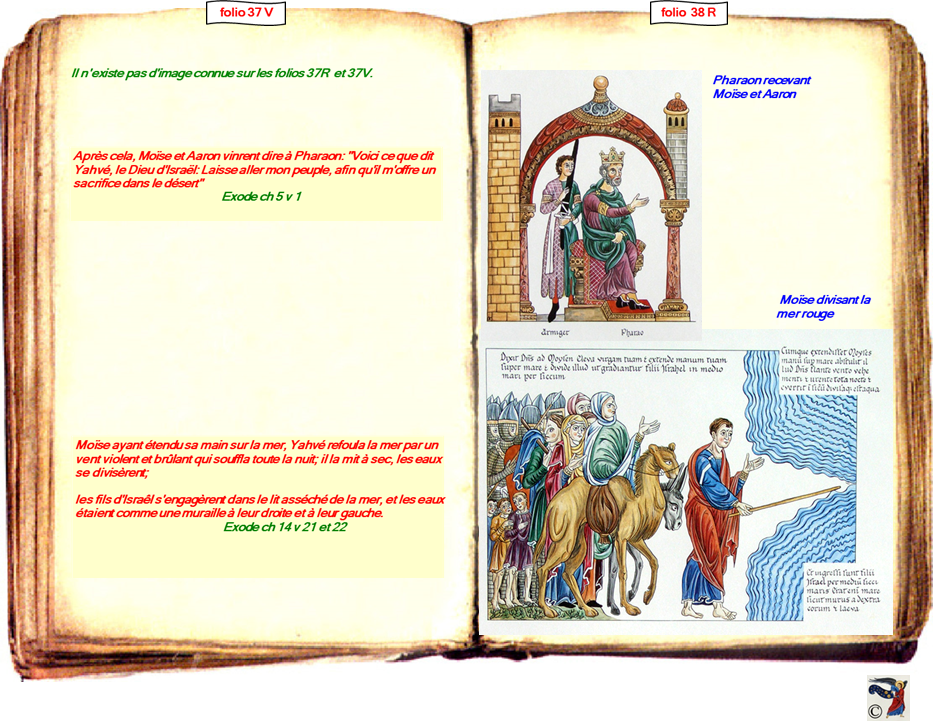 folio 37 V
Il n'existe pas d'image connue sur les folios 37R et 37V.
Après cela, Moïse et Aaron vinrent dire à Pharaon: "Voici ce que dit
Yahvé, le Dieu d'Israël: Laisse aller mon peuple, afin qu'il m'offre un
sacrifice dans le désert"
Exode ch 5 v 1
Moïse ayant étendu sa main sur la mer, Yahvé refoula la mer par un
vent violent et brûlant qui souffla toute la nuit; il la mit à sec, les eaux
se divisèrent;
les fils d'Israêl s'engagèrent dans le lit asséché de la mer, et les eaux
étaient comme une muraille à leur droite et à leur gauche.
Exode ch 14 v 21 et 22
folio 38 R
Pharaon recevant
Moïse et Aaron
Armiger Pharao
Moïse divisant la
mer rouge
Dixit Dñs ad Moysen Eleva virgam tuam & extende manum tuam
super mare & divide illud ut gradiantur filii Israhel in medio
mari per siccum
Cumque extendisset Moyses
manū sup mare abstulit il
lud Dñs flante vento vehe
menti & urente tota nocte &
evertit ī siccū
Et ingressi sunt filii
Israel per mediū sicci
maris Erat enī mare
sicut murus a dextra
eorum & laeva
©